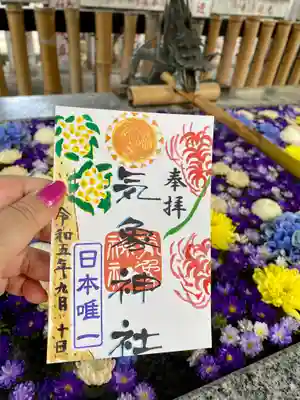 奉拝
気象神社
日本唯一
令和五年九月十日